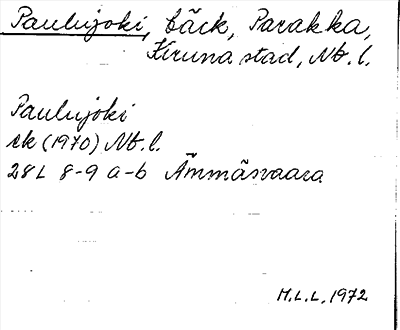 Paulujoki, bäck, Parakka,
Kiruna stad, Nb. l.
Paulujoki
ek (1970) Nb. l.
28L 8-9 a-b Ämmäsvaara
M.L.L. 1972